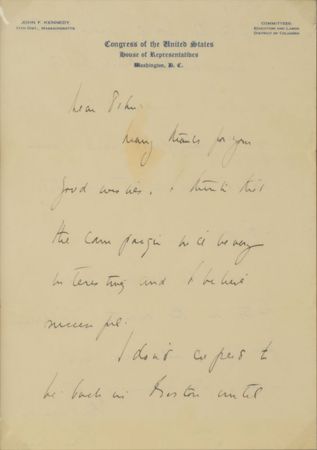 JOHN F. KENNEDY
11TH DIST., MASSACHUSETTS
COMMITTEES:
EDUCATION AND LABOR
DISTRICT OF COLUMBIA
Congress of the United States
House of Representatives
Washington, D. C.
Dear
Many thanks for your
good wishes. I think that
the campaign will be very
interesting and I believe
successful.
I don't expect to
be back in Boston until